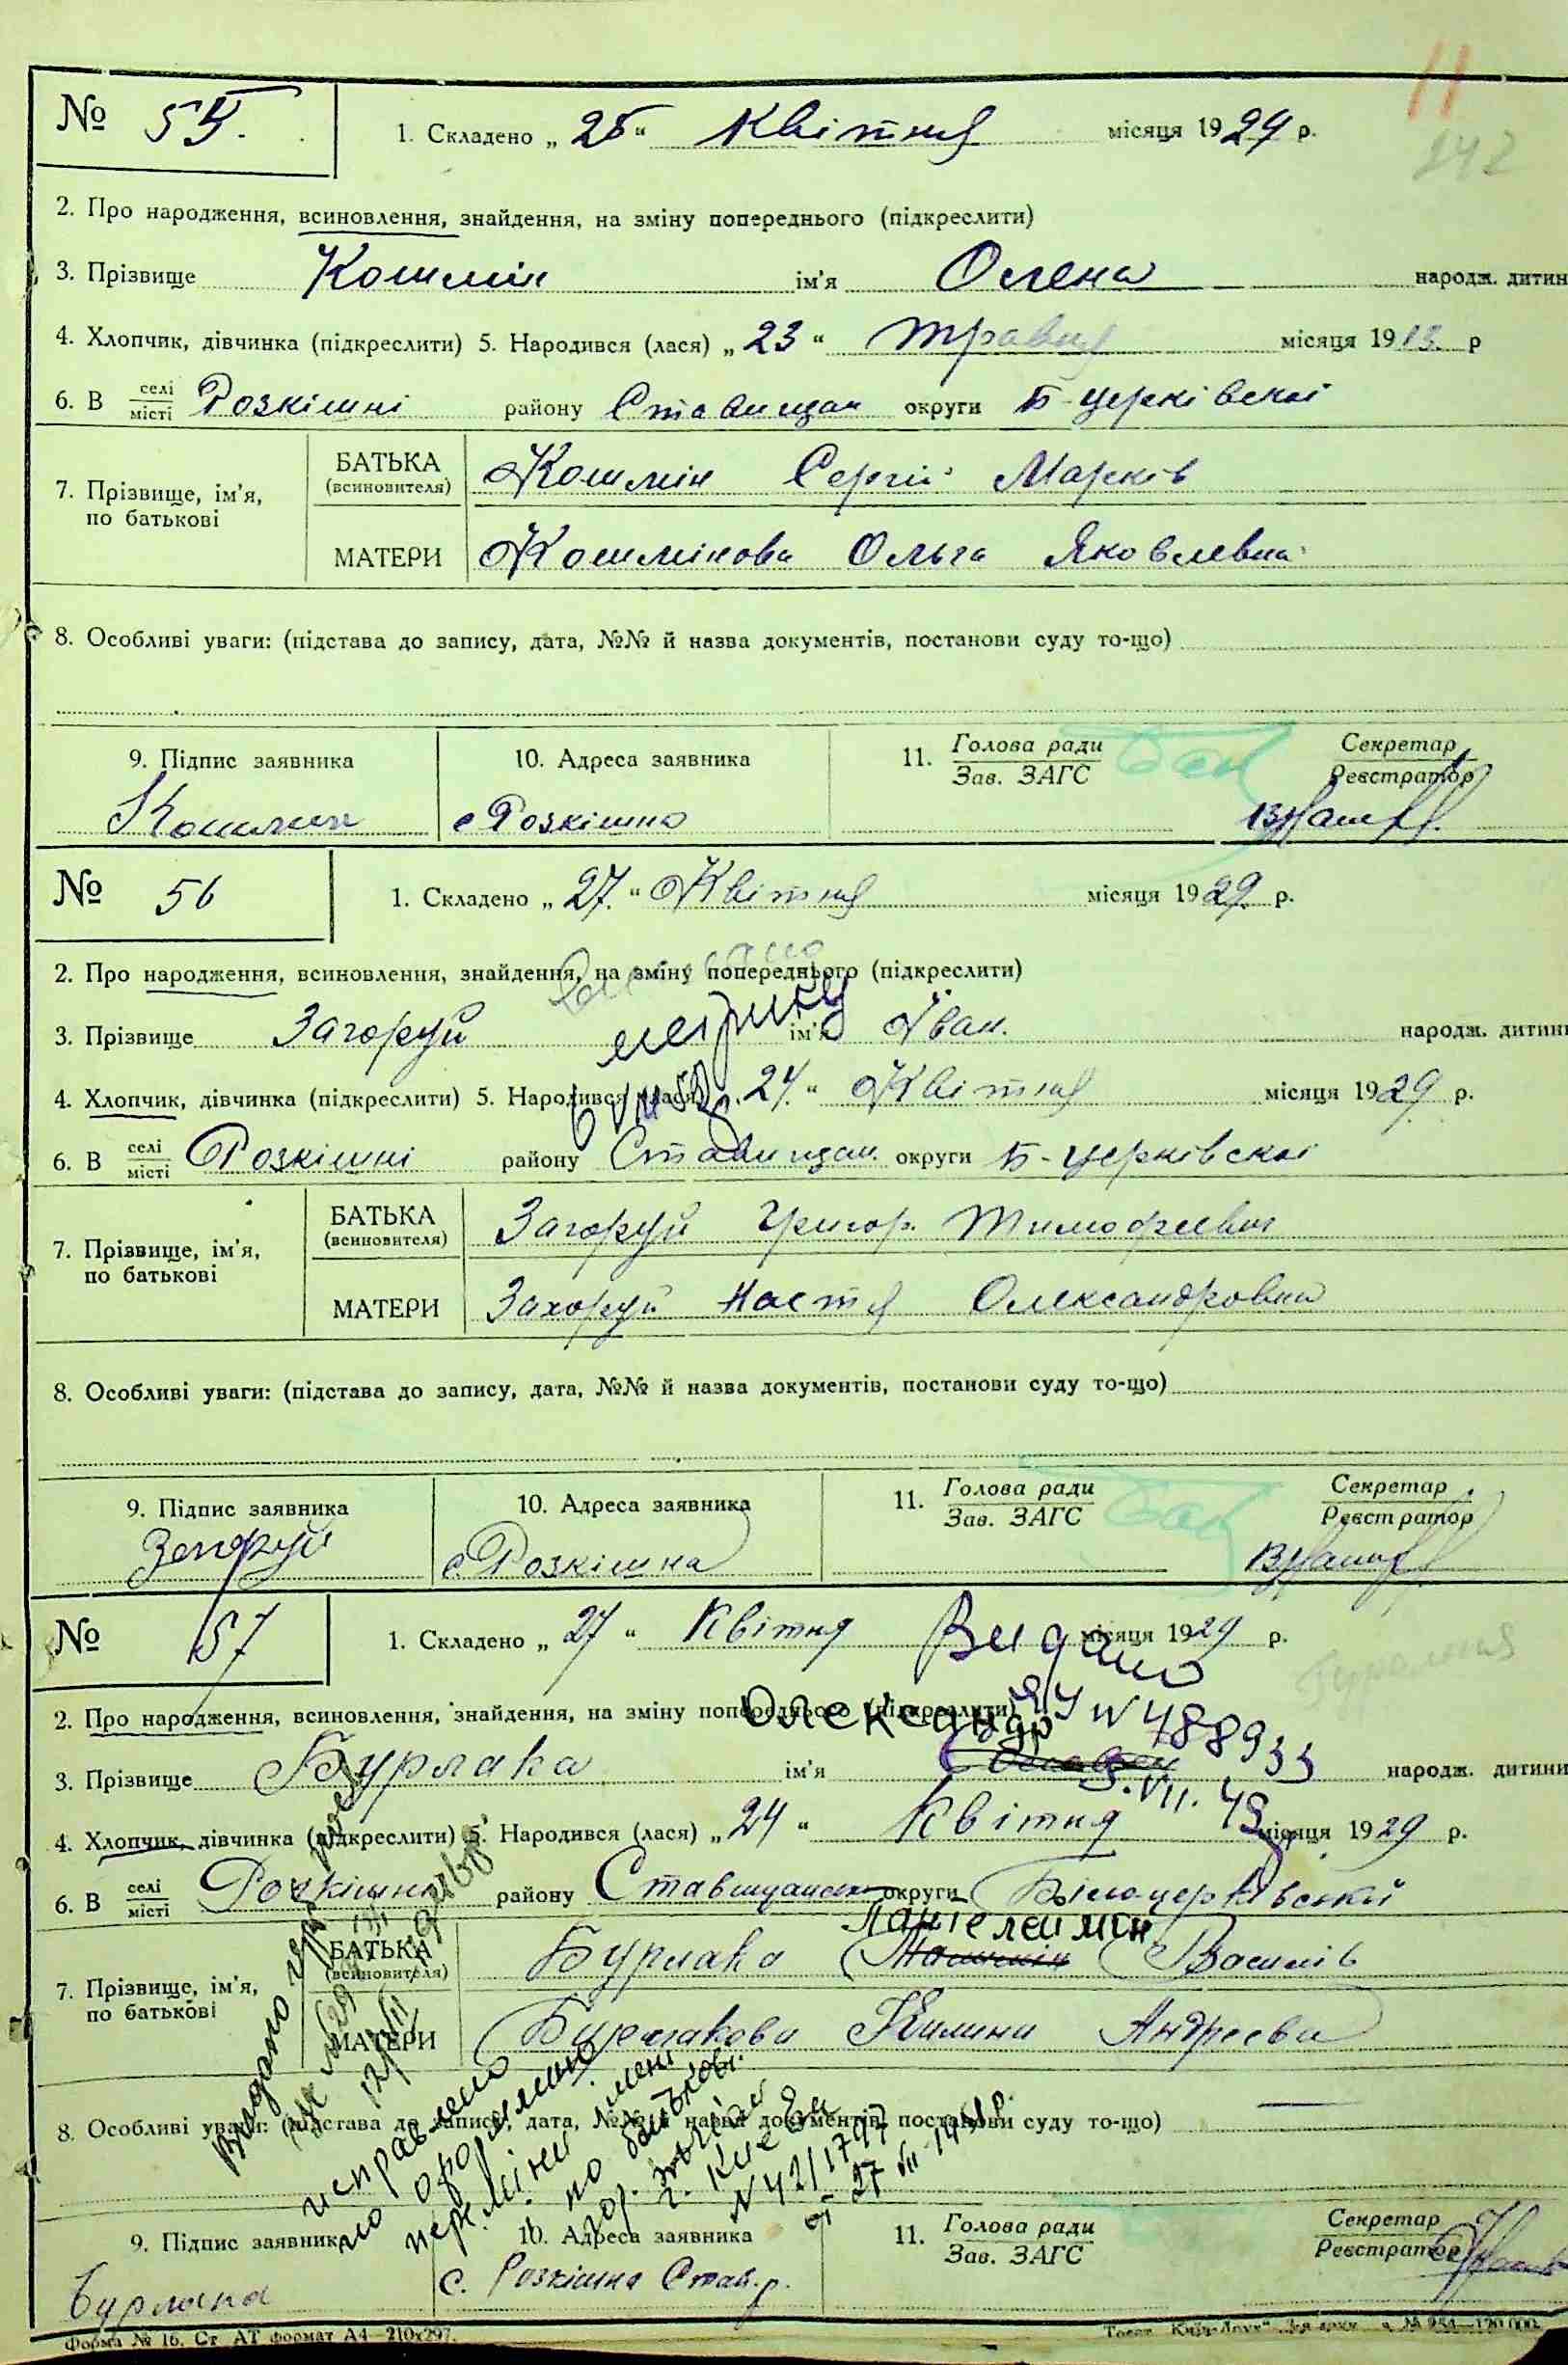 11
242
№ 55. 1. Складено „ 25 “ Квітня місяця 1929 р.
2. Про народження, всиновлення, знайдення, на зміну попереднього (підкреслити)
3. Прізвище Кошмін ім'я Олена народж. дитин
4. Хлопчик, дівчинка (підкреслити) 5. Народився (лася) „ 23 “ травня місяця 1913. р
6. В селі/місті Розкішні району Ставищан округи Б-церківскої
7. Прізвище, ім'я, по батькові
БАТЬКА (всиновителя) Кошмін Сергій Марків
МАТЕРИ Кошмінова Ольга Яковлевна
8. Особливі уваги: (підстава до запису, дата, №№ й назва документів, постанови суду то-що)
9. Підпис заявника 10. Адреса заявника 11. Голова ради/Зав. ЗАГС Секретар/Реєстратор
Кошмин с Розкішна
№ 56 1. Складено „ 27. “ Квітня місяця 1929. р.
2. Про народження, всиновлення, знайдення, на зміну попереднього (підкреслити)
метрику
3. Прізвище Загоруй ім'я Іван. народж. дитини
4. Хлопчик, дівчинка (підкреслити) 5. Народився (лася) „ 24. “ Квітня місяця 1929 р.
6. В селі/місті Розкішні району Ставищан. округи Б-церківскої
7. Прізвище, ім'я, по батькові
БАТЬКА (всиновителя) Загоруй Григор. Тимофеевич
МАТЕРИ Захоруй Настя Олександровна
8. Особливі уваги: (підстава до запису, дата, №№ й назва документів, постанови суду то-що)
9. Підпис заявника 10. Адреса заявника 11. Голова ради/Зав. ЗАГС Секретар/Реєстратор
Загоруй с. Розкішна
№ 57 1. Складено „ 27 “ Квітня місяця 1929 р.
Видано
2. Про народження, всиновлення, знайдення, на зміну попереднього (підкреслити)
Олександр
N 488933
3. Прізвище Бурлака ім'я народж. дитини
5.VII.49
4. Хлопчик, дівчинка (підкреслити) 5. Народився (лася) „ 24 “ Квітня місяця 1929 р.
6. В селі/місті Розкішна району Ставищанськ округи Білоцерківської
Пантелеймон
7. Прізвище, ім'я, по батькові
БАТЬКА (всиновителя) Бурлака Василів
МАТЕРИ Бурлакова Килина Андреева
8. Особливі уваги: (підстава до запису, дата, №№ й назва документів, постанови суду то-що)
Видано
исправлено
по батькові
г. Киева
N 42/1797
9. Підпис заявника 10. Адреса заявника 11. Голова ради/Зав. ЗАГС Секретар/Реєстратор
Бурлака с. Розкішна Став.р.
Форма № 16. Ст. АТ формат А4—210х297.